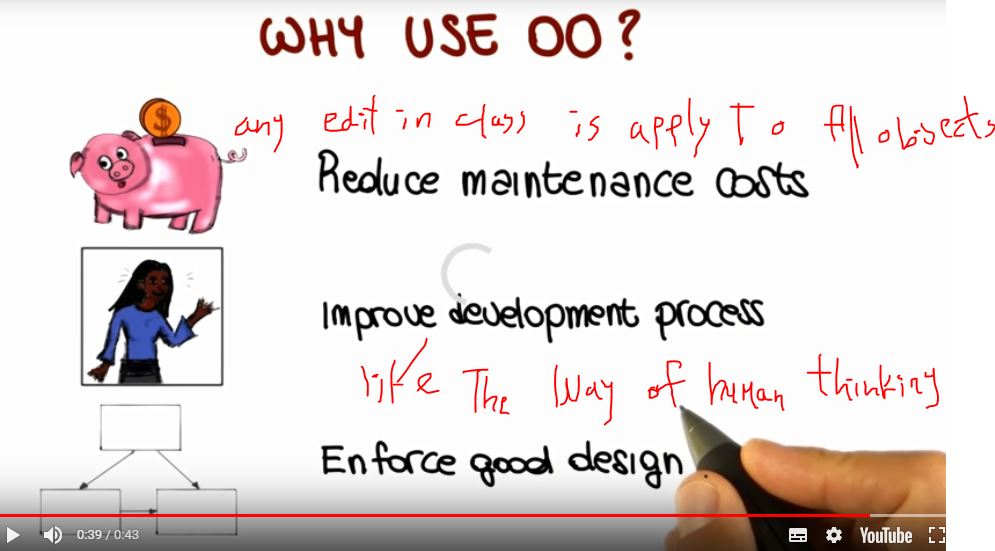 WHY USE OO?
$
any edit in class is apply To All objects
Reduce maintenance costs
Improve development process
like The Way of human thinking
Enforce good design
0:39 / 0:43
YouTube